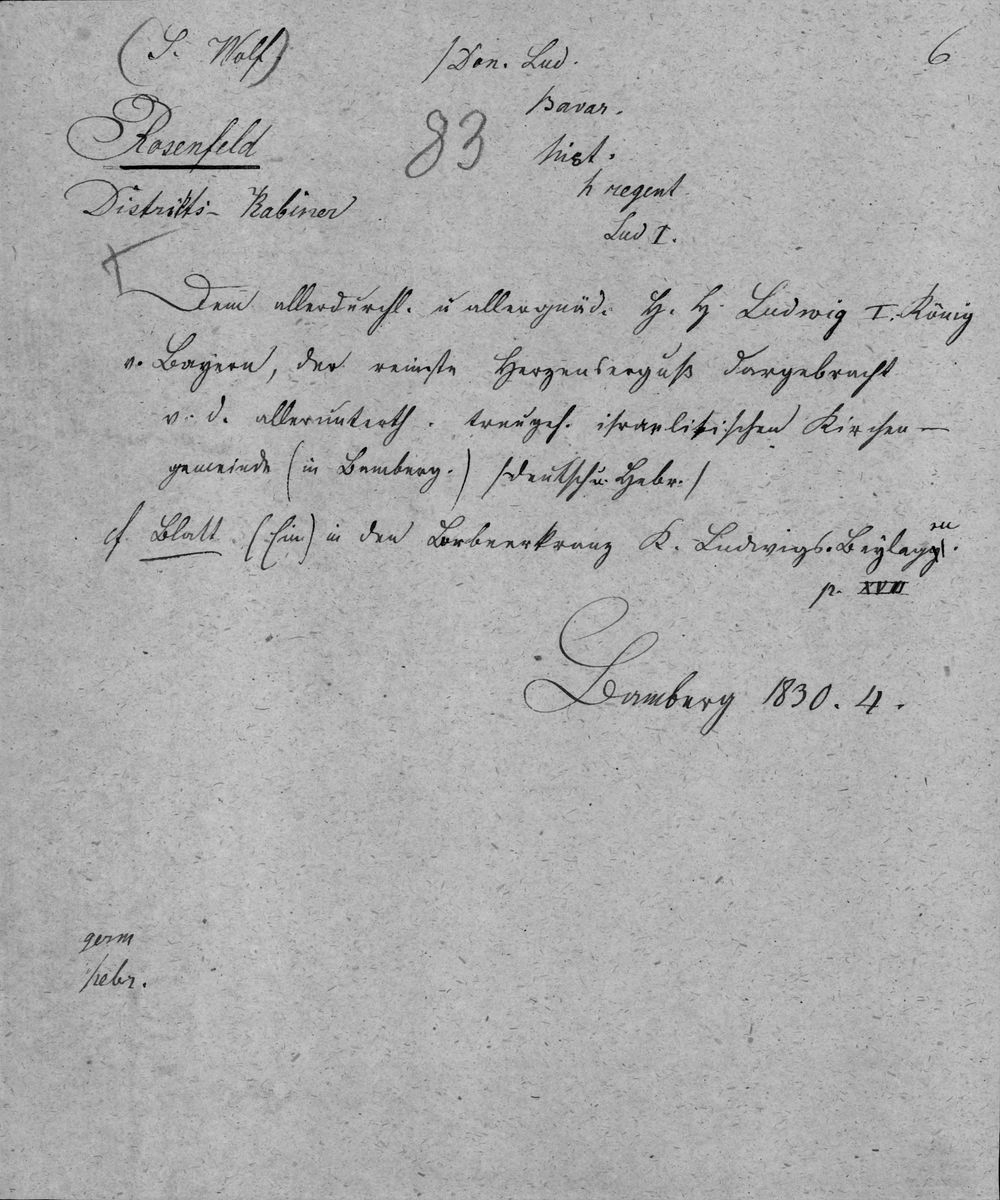 (S. Wolf)
Rosenfeld
Distrikts- Rabiner
/Don. Lud.
Bavar.
hist.
h regent
Lud I.
6
83
Dem allerdurchl. u allergnäd. H. H. Ludwig I. König
v. Bayern, der reinste Herzenserguß dargebracht
v. d. allerunterth. treugeh. israelitischen Kirchen-
gemeinde (in Bamberg.) /deutsch u. Hebr./
cf. Blatt (Ein) in den Lorbeerkranz K. Ludwigs. Beylagen.
p. XVII
Bamberg 1830. 4.
germ
hebr.